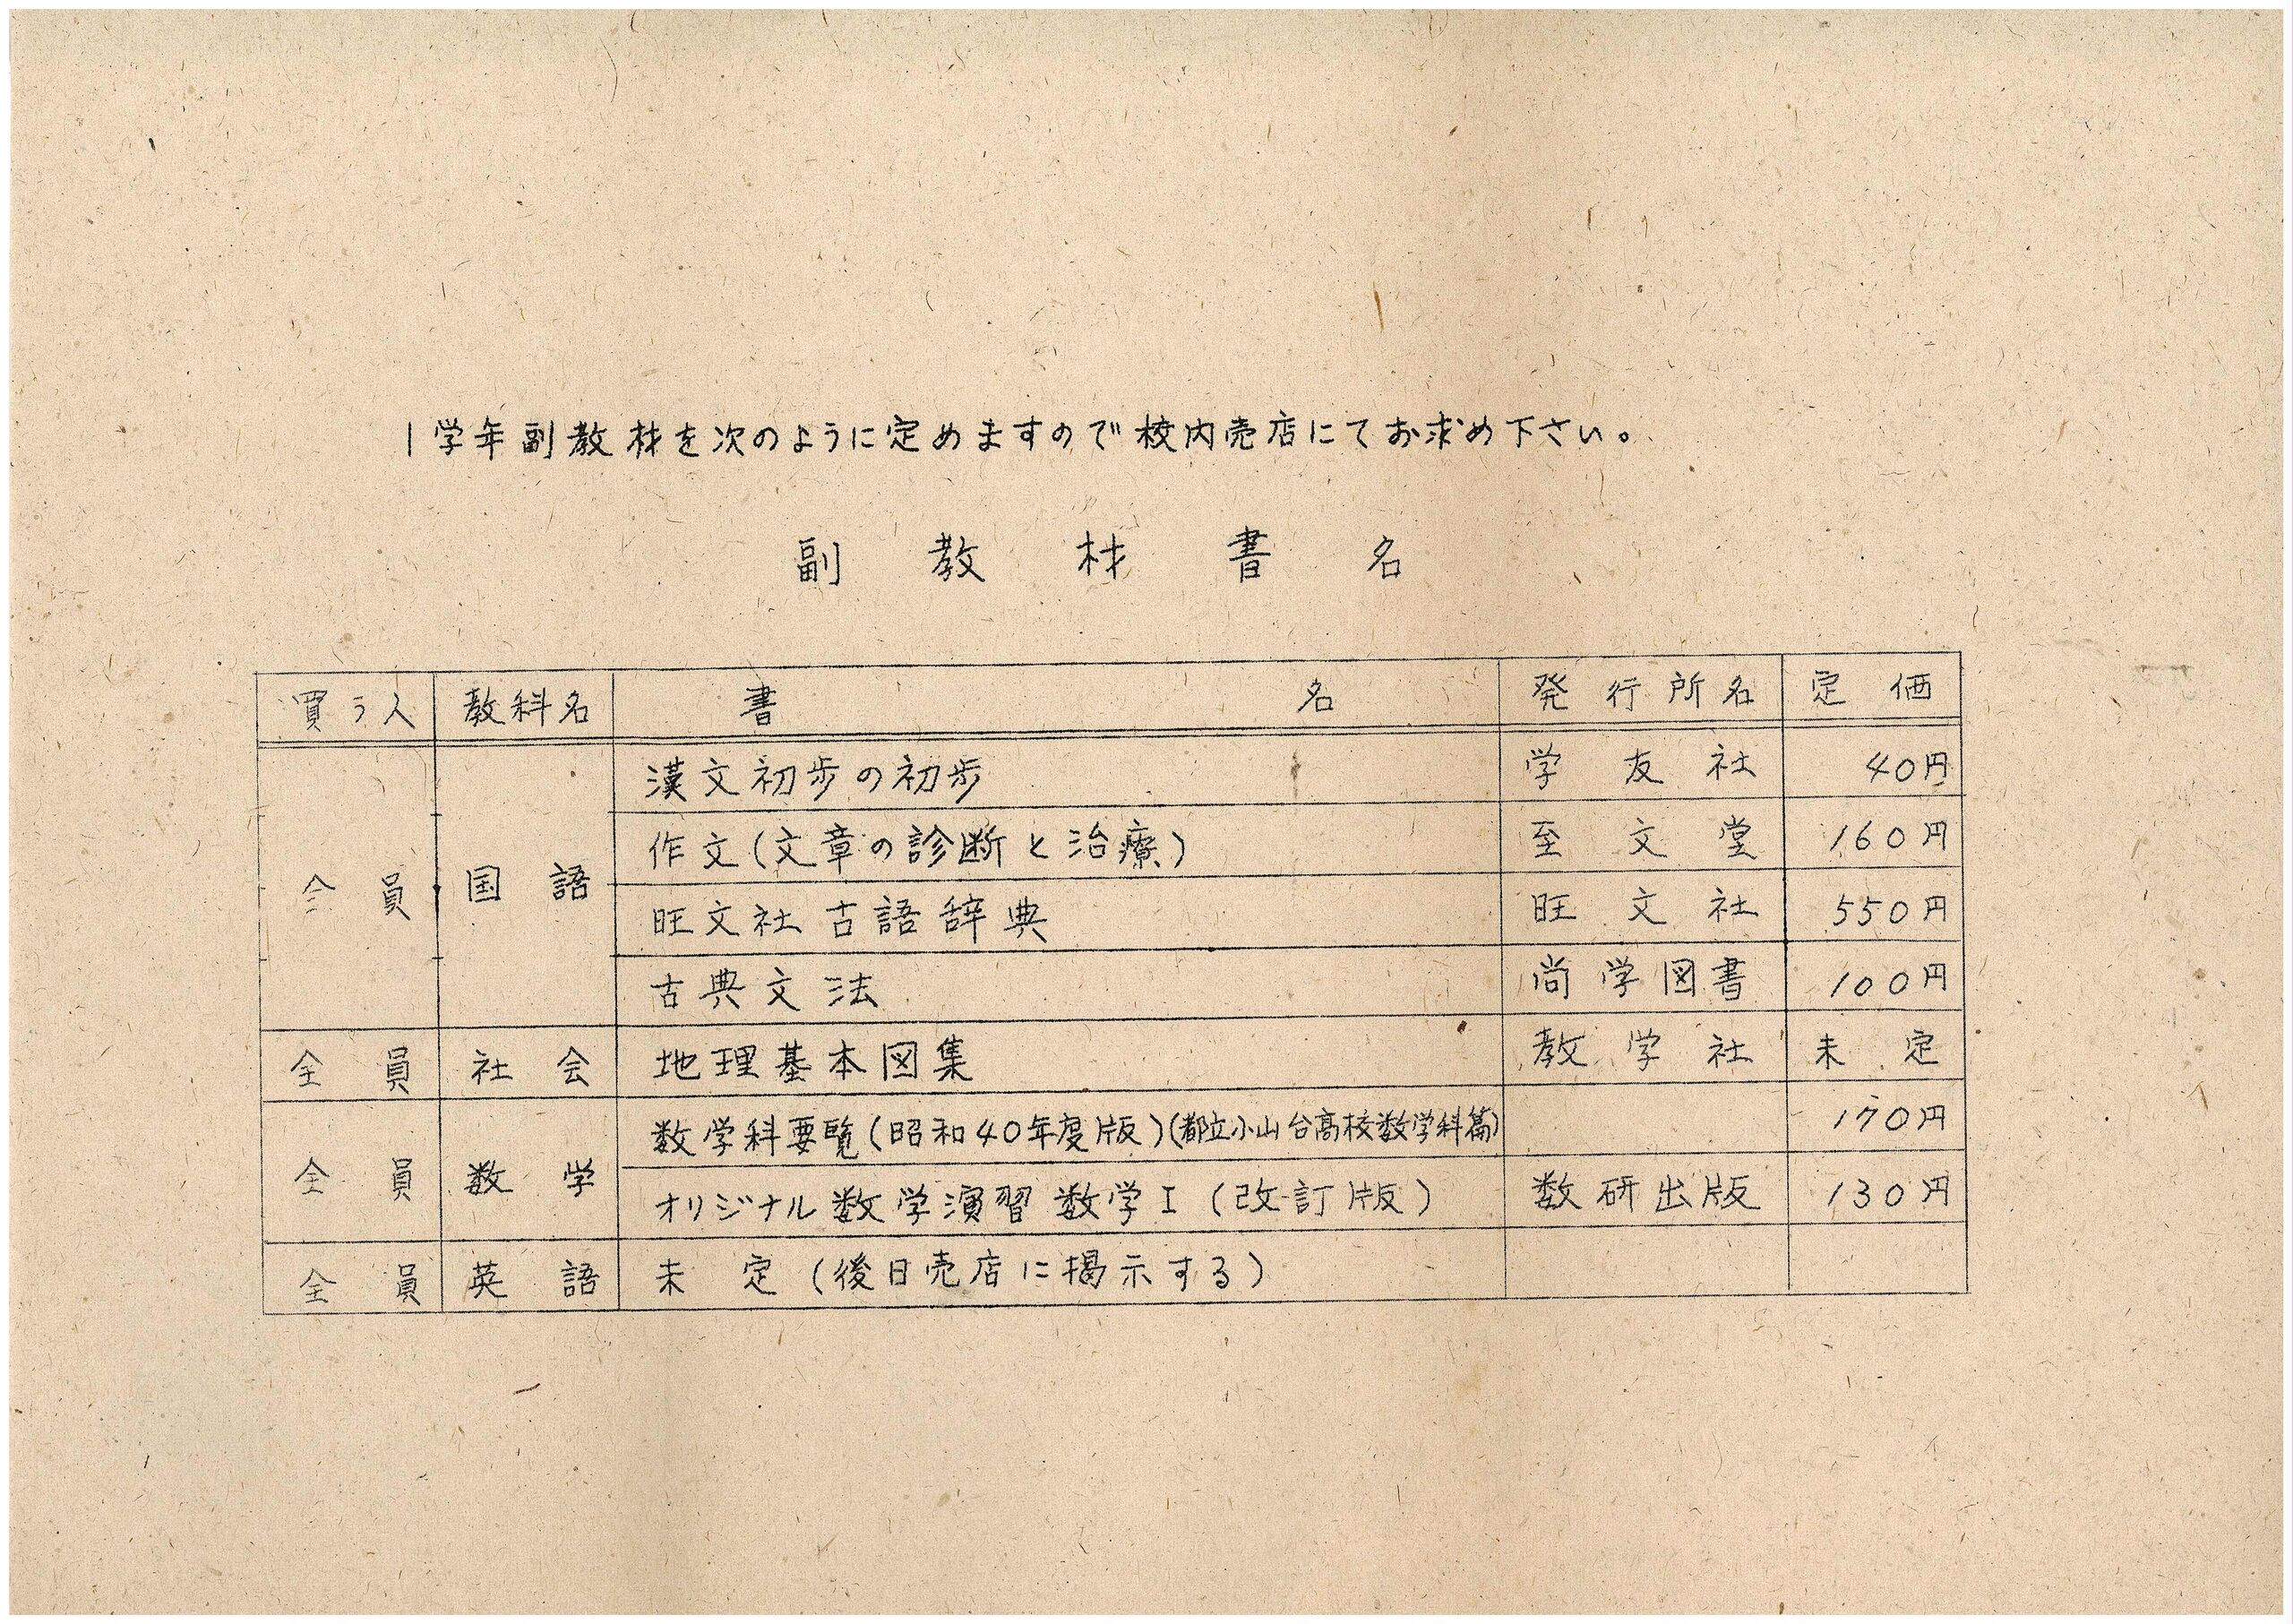 1学年副教材を次のように定めますので校内売店にてお求め下さい。
副教材書名
買う人 教科名 書名 発行所名 定価
漢文初歩の初歩 学友社 40円
作文(文章の診断と治療) 至文堂 160円
全員 国語
旺文社古語辞典 旺文社 550円
古典文法 尚学図書 100円
全員 社会 地理基本図集 教学社 未定
数学科要覧(昭和40年度版)(都立小山台高校数学科篇) 170円
全員 数学
オリジナル数学演習数学I(改訂版) 数研出版 130円
全員 英語 未定(後日売店に掲示する)